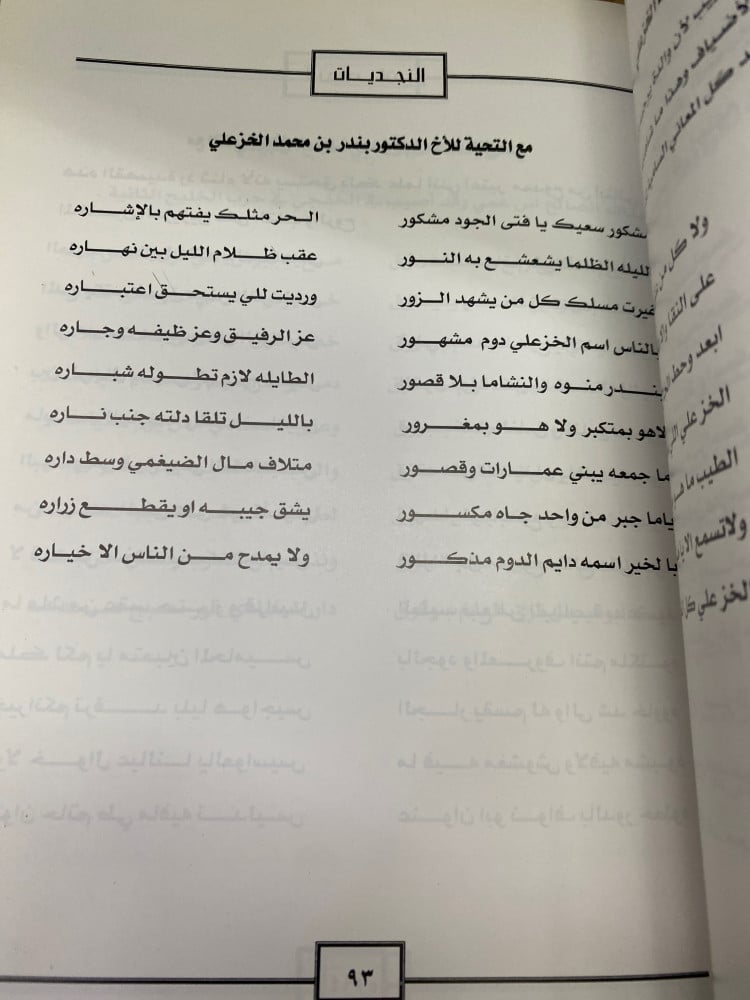 النجديات
مع التحية للأخ الدكتور بندر بن محمد الخزعلي
مشكور سعيك يا فتى الجود مشكور الحر مثلك يفتهم بالإشاره
لليله الظلما يشعشع به النور عقب ظلام الليل بين نهاره
غيرت مسلك كل من يشهد الزور ورديت للي يستحق اعتباره
بالناس اسم الخزعلي دوم مشهور عز الرفيق وعز ظيفه وجاره
بندر منوه والنشاما بلا قصور الطايله لازم تطوله شباره
لاهو بمتكبر ولا هو بمغرور بالليل تلقا دلته جنب ناره
ما جمعه يبني عمارات وقصور متلاف مال الضيغمي وسط داره
ياما جبر من واحد جاه مكسور يشق جيبه او يقطع زراره
بالخير اسمه دايم الدوم مذكور ولا يمدح من الناس الا خياره
٩٣
ولا كل من
على النقا
ابعد وحط
الخزعلي
الطيب ما
ولا تسمع
الخزعلي كل